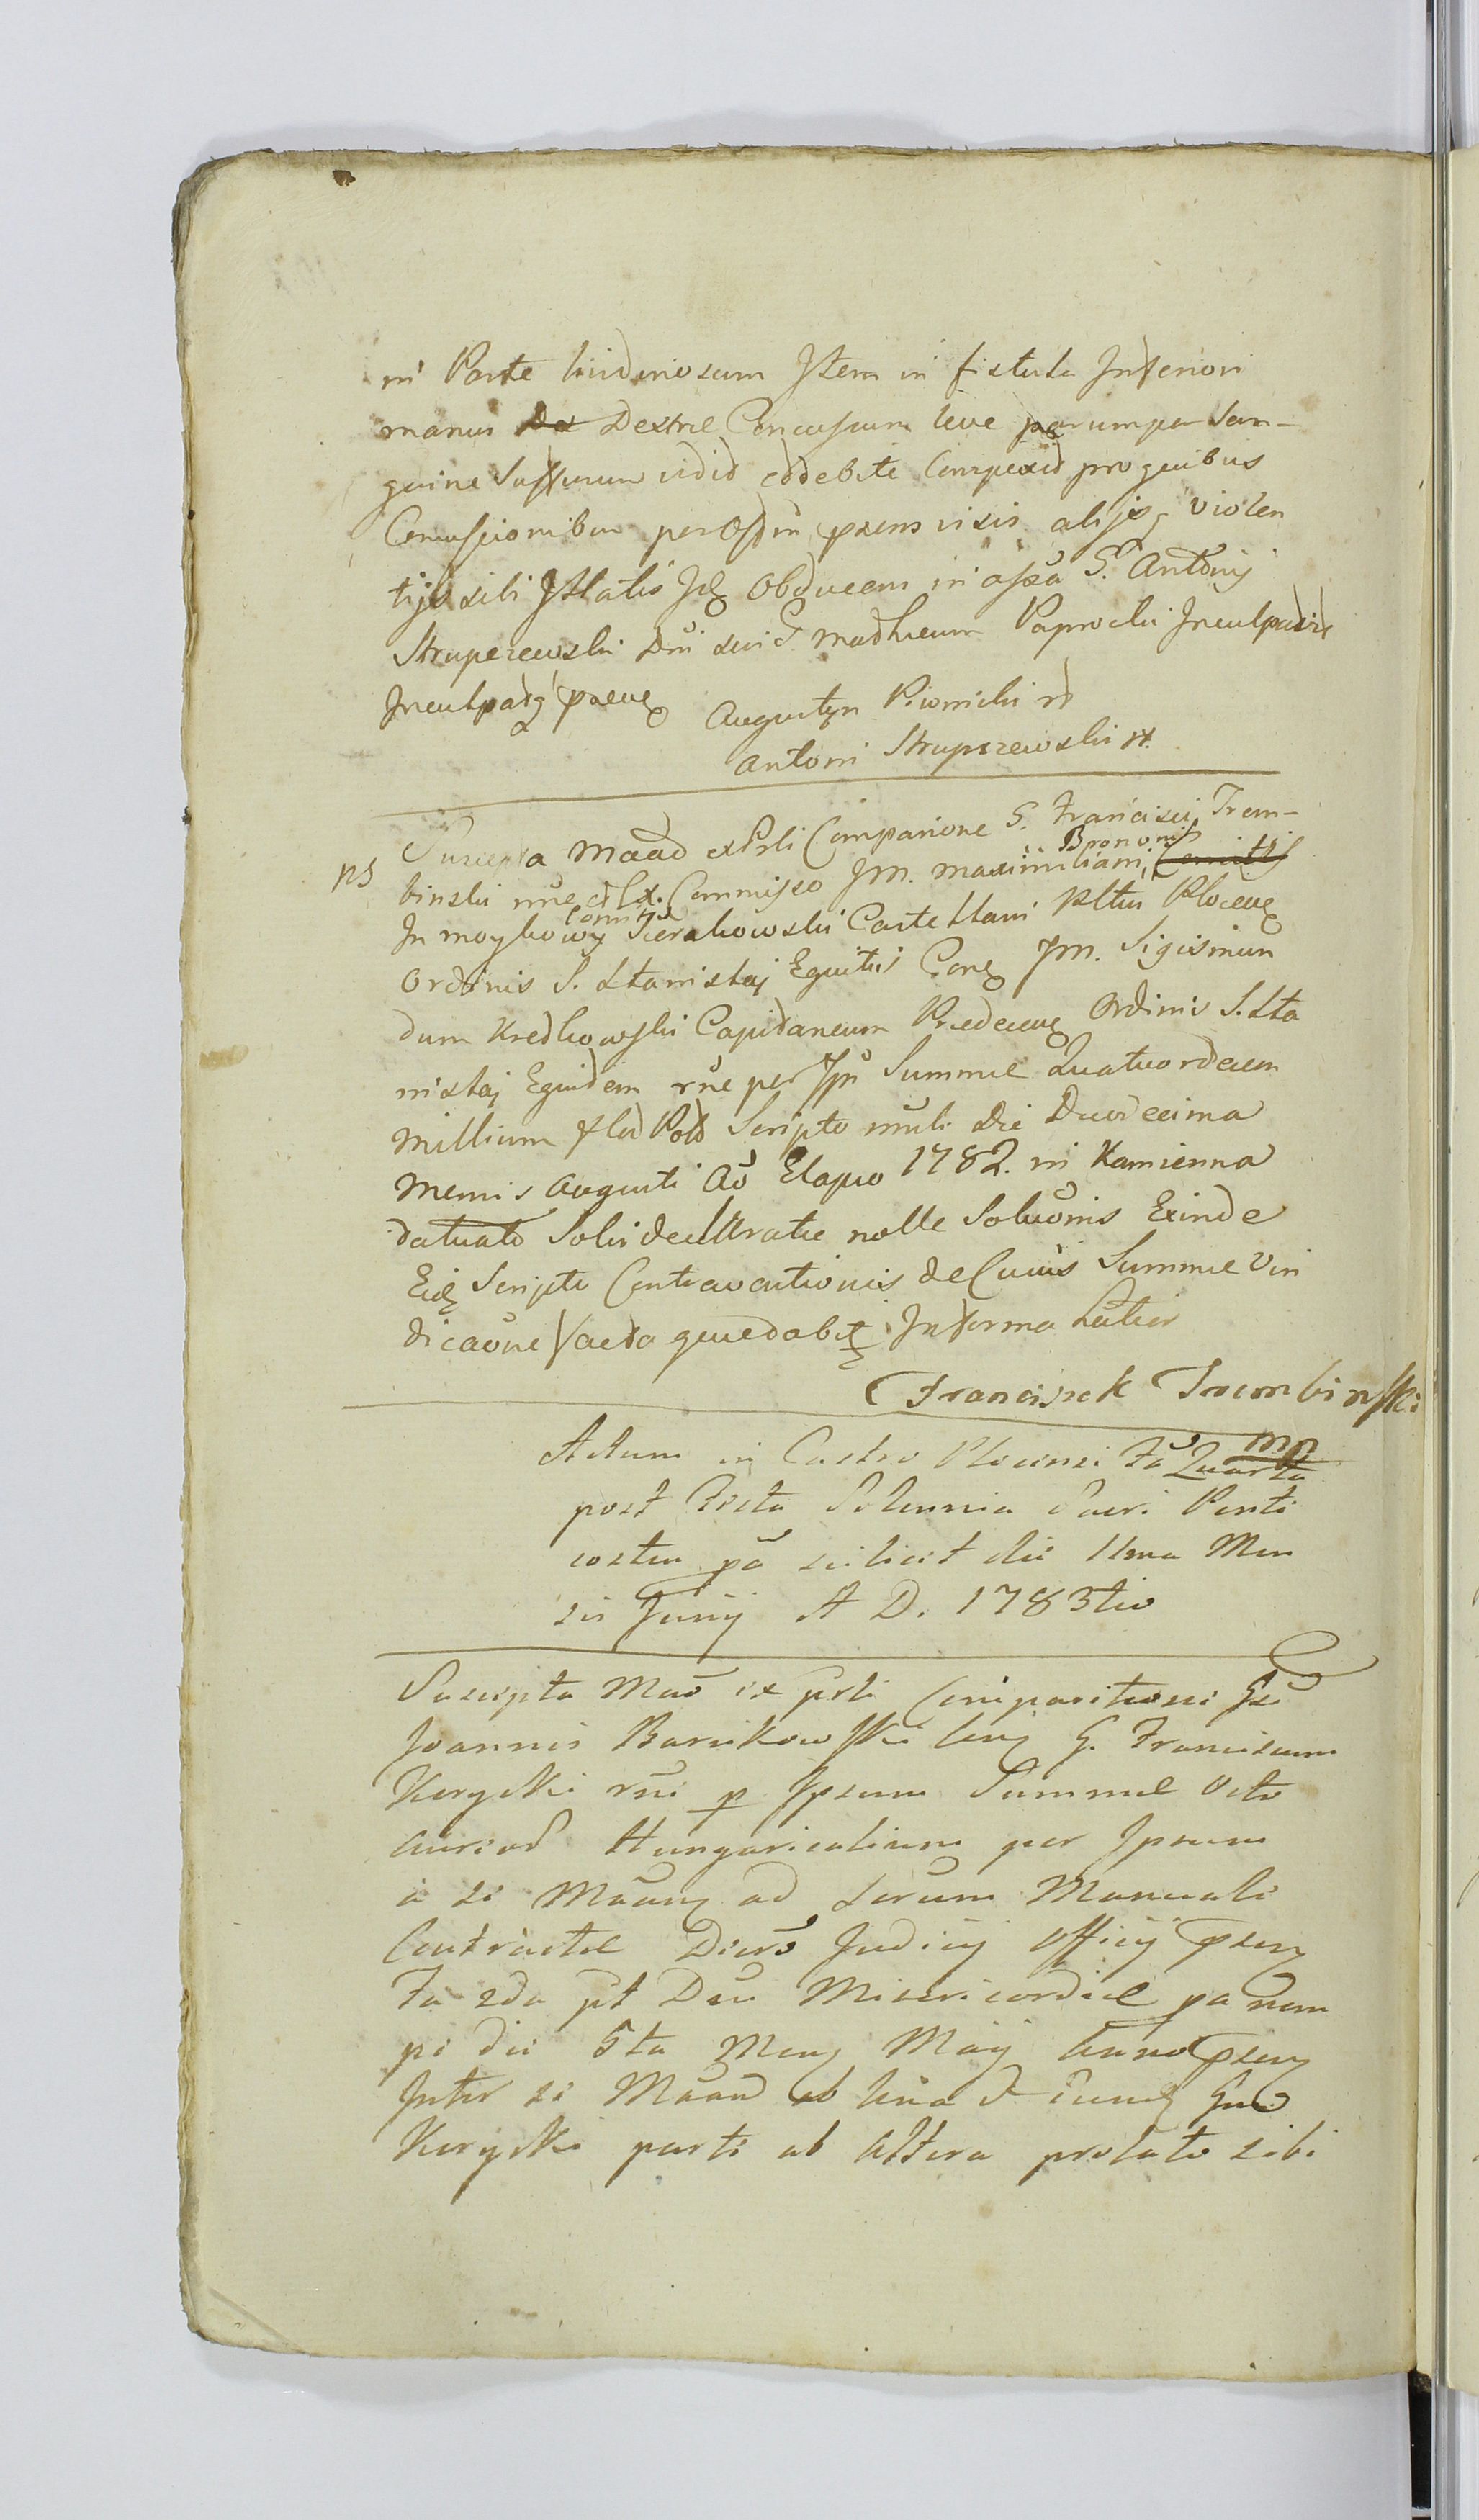 in Parte livdinosum Item in fistula Inferiori
manus Dex Dextrae Concusium leve parumper San-
guine Suffusum vidid eddebite Conspexid pro quibus
Concussionibus per Offm praems visis alijsq violen
tijs sibi Illatis Idq Obducens in assa G. Antonij
Strupczewski Dni sui G. Madheum Paprocki Inculpavit
Inculpatq praevq Augustyn Piwnicki
Antoni Strupczewski
Suscepta Maad ex Psti Comparione G. Francisci Trem-
ns binski nne et Ex. Commisso Jm. Maximiliani Brononis Comitis
In moykowy Comitis Sierakowski Castellani Pltus Plocenq
Ordinis S. Stanislaj Equitis Conq Jm. Sigismun
dum Kredkowski Capidaneum Praedecenq Ordinis S. Sta
nislaj Equidem rne per Ipm Summae Quatuordecem
Millium flod Pold Scripto mnli die Duodecima
Mensis Augusti Ao Elapso 1782. in Kamienna
datuato Solidellratae nolle Solvonis Exinde
Eidq Scripti Contravationis de Cuius Summae Vin
dicaone facta quedabit Informa Latior
Franciszek Trembinski
mp
Actum in Castro Plocensi Fa Quarta
post Festa Solennia Sacri Pente
costes pa scilicet die 11ma Men
sis Junij A D. 1783tio
Suscepta Mao ex psti Comparitione Gsi
Joannis Barcikowski Conq G. Franciscum
Kurycki rni p Ipsum Summae Octo
Aureod Hungaricalium per Ipsum
a se Maanq ad Lorum Manuali
Contractae Decro Judicij Officij psenq
Fa 2da pt Dca Misericordiae pa nem
pe die 5ta Menq Maij Anno psenq
Inter se Maand ab Una et Eundq Gno
Kurycki parte ab Altera prolato sibi